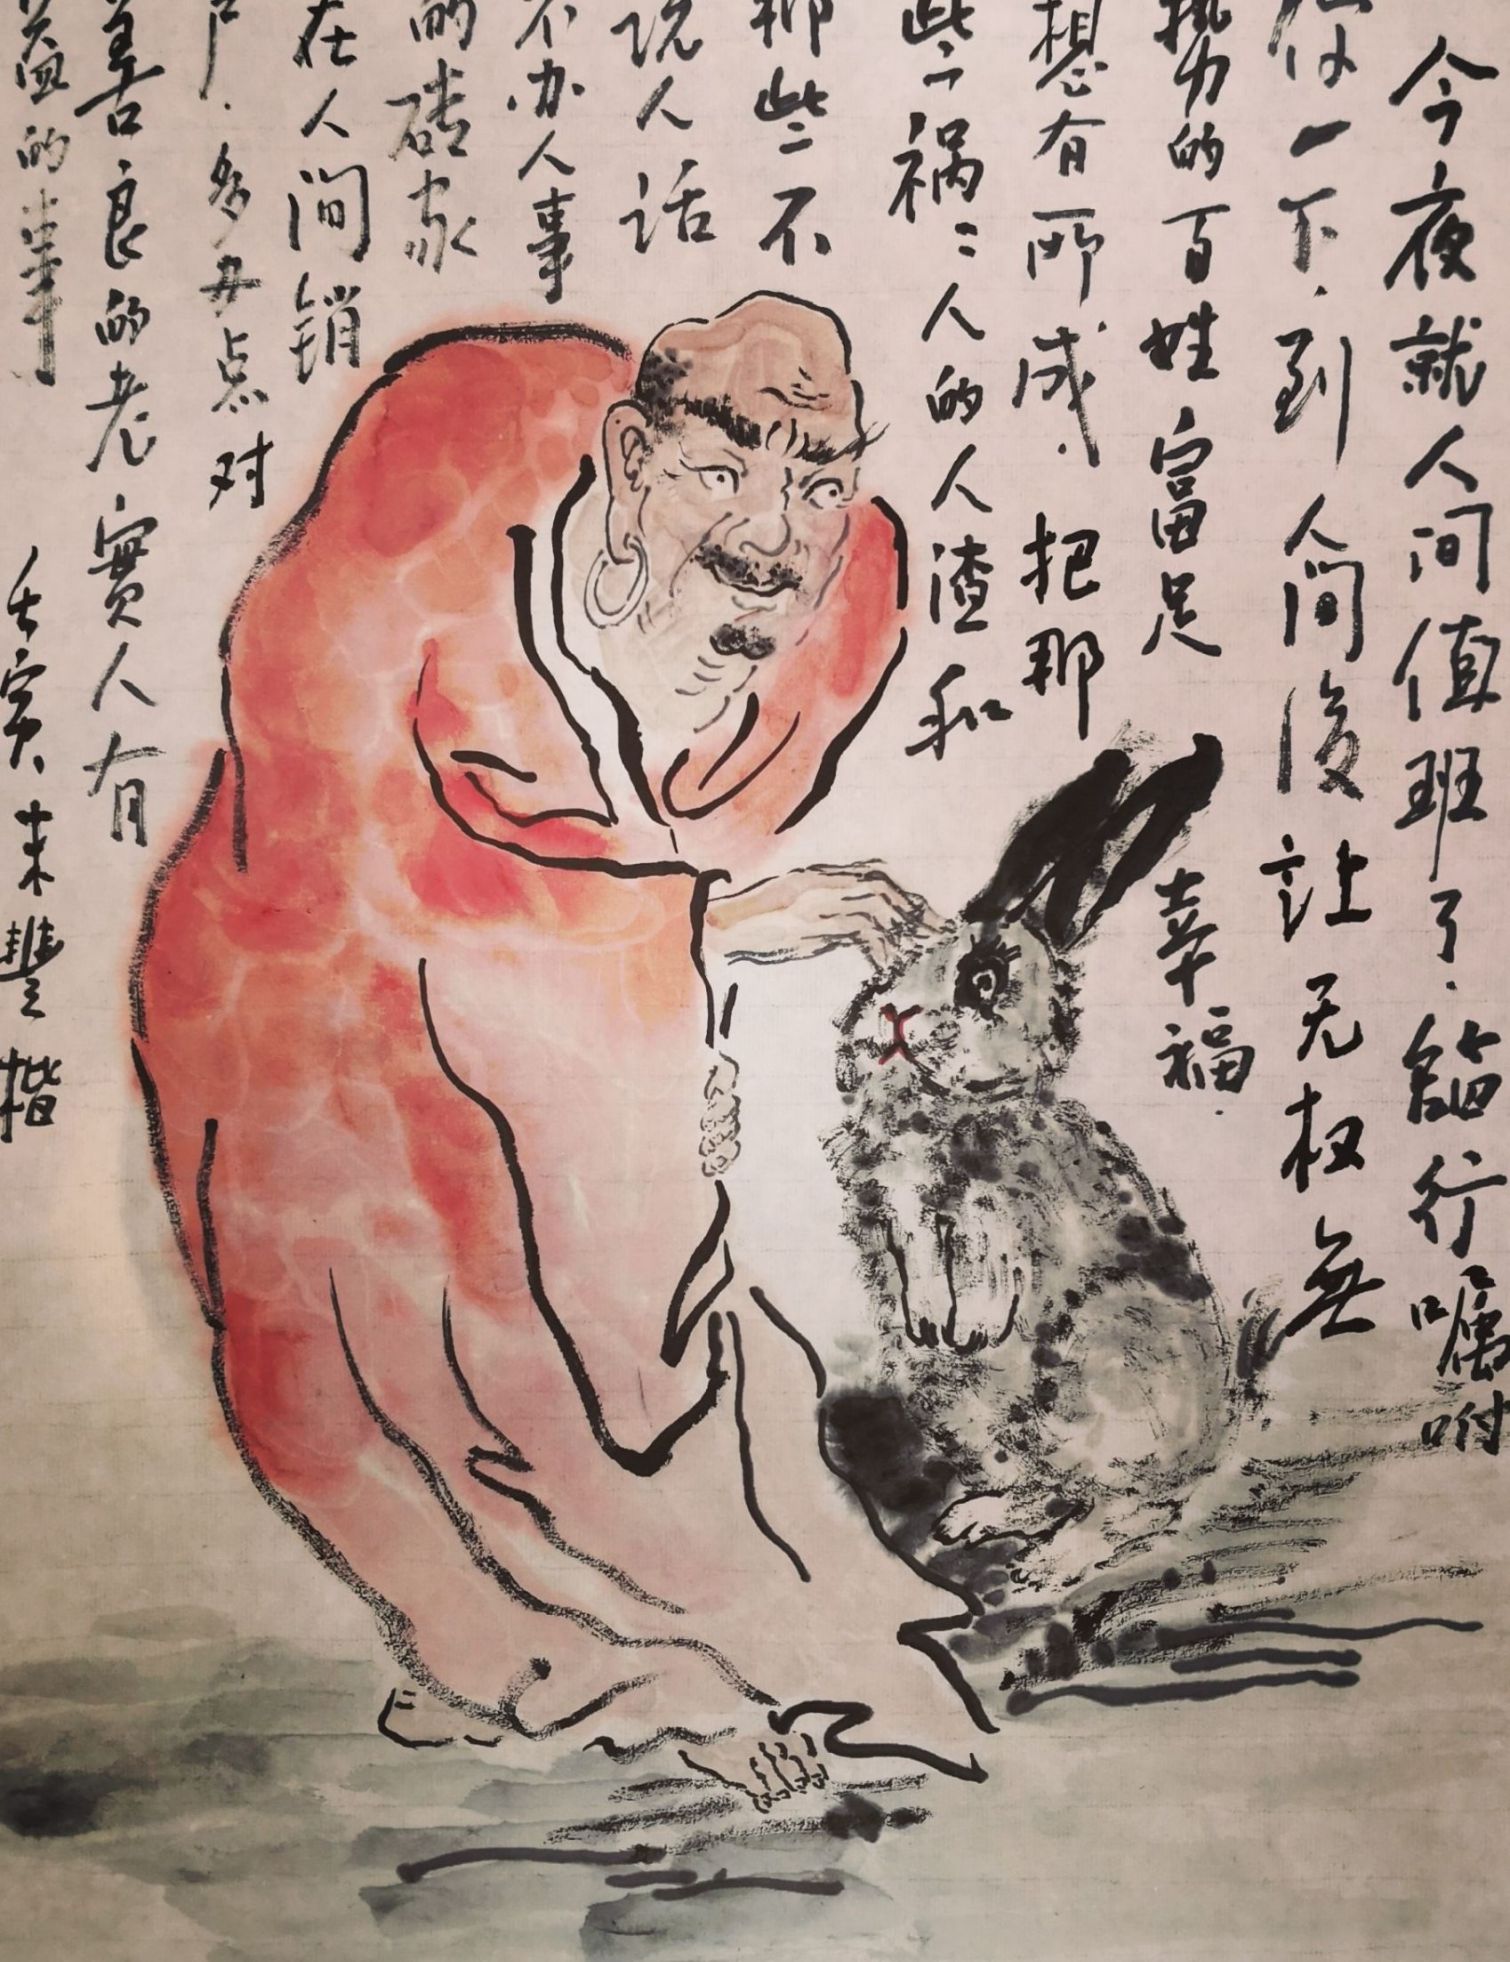 今夜就人间值班了.临行嘱咐
你一下.到人间後让无权無
势力的百姓富足幸福.
想有所成.把那
些祸祸人的人渣和
那些不
说人话
不办人事
的砖家
在人间销
户.多丑点对
善良的老實人有
益的事
壬寅末豐楷